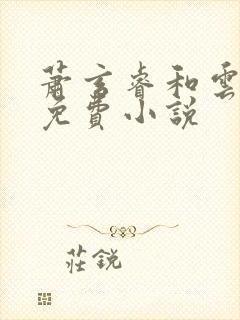 蕭言睿和雲
免費小說
莊銳